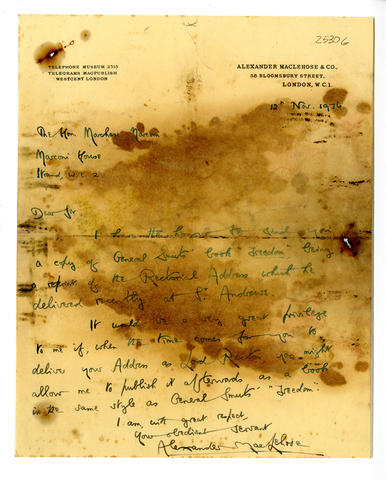 25306
TELEPHONE MUSEUM 2715
TELEGRAMS MACPUBLISH
WESTCENT LONDON
ALEXANDER MACLEHOSE & CO.,
58 BLOOMSBURY STREET,
LONDON, W.C.1.
12 Nov. 1934
The Hon. Marchese Marconi
Marconi House
Strand, W.C.2
Dear Sir
I have the honour to send you
a copy of General Smuts' book "Freedom", being
a reprint of the Rectorial Address which he
delivered recently at St. Andrews.
It would be a very great privilege
to me if, when the time comes for you to
deliver your Address as Lord Rector, you might
allow me to publish it afterwards as a book
in the same style as General Smuts' "Freedom".
I am, with great respect
Your obedient servant
Alexander MacLehose